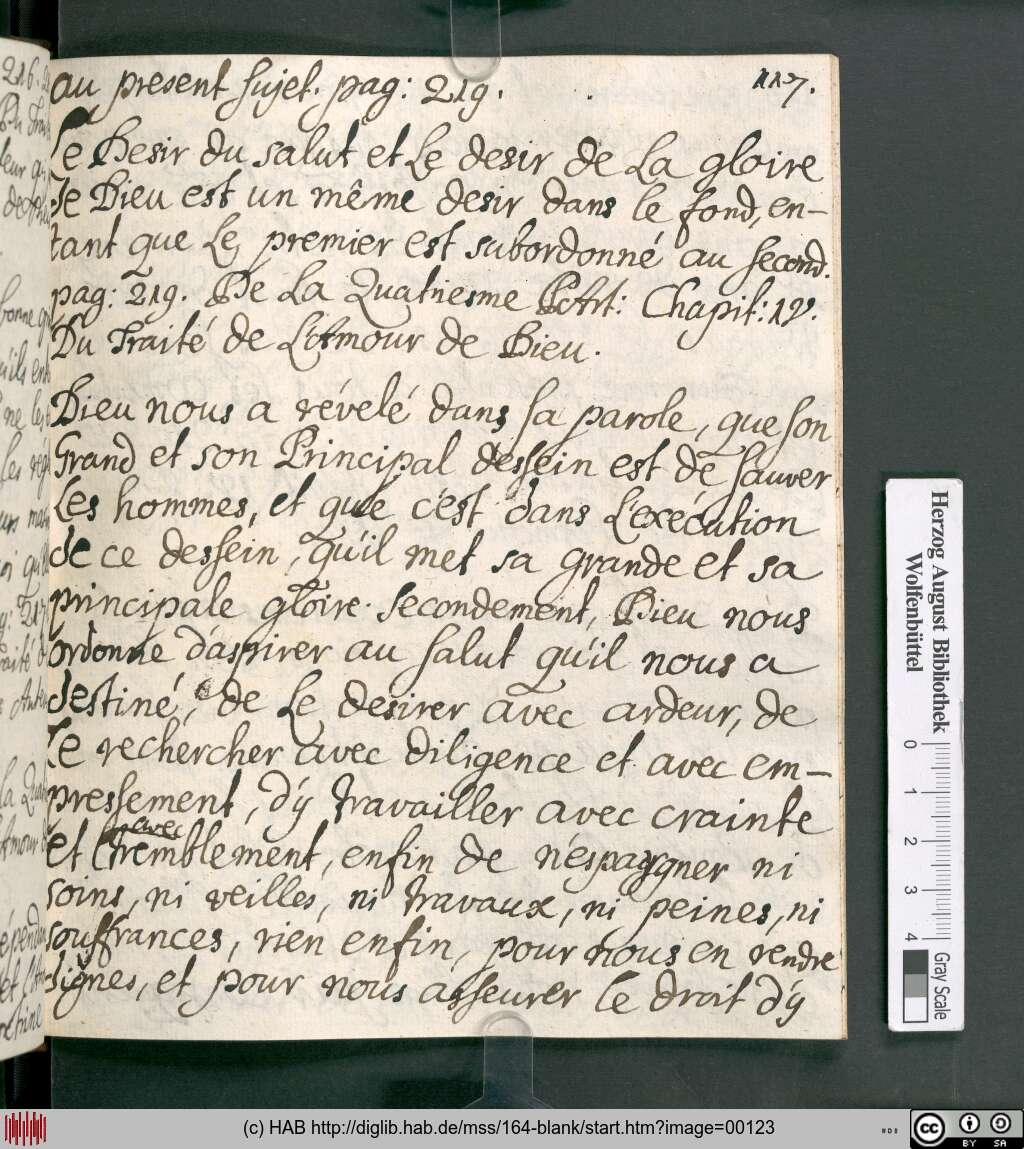 117.
au present sujet. pag: 219.
Le Desir du salut et Le desir de La gloire
de Dieu est un même desir dans le fond, en-
tant que Le premier est subordonné au second.
pag: 219. De La Quatriesme Part: Chapit: IV.
Du Traité de L'Amour de Dieu.
Dieu nous a révelé dans sa parole, que son
Grand et son Principal dessein est de sauver
Les hommes, et que c'est dans L'exécution
de ce dessein, qu'il met sa grande et sa
principale gloire. Secondement, Dieu nous
ordonne d'aspirer au salut qu'il nous a
destiné, de Le desirer avec ardeur, de
Le rechercher avec diligence et avec em-
pressement, d'y travailler avec crainte
et avec tremblement, enfin de n'espargner ni
soins, ni veilles, ni travaux, ni peines, ni
souffrances, rien enfin, pour nous en rendre
dignes, et pour nous asseurer le droit d'y
216.
bonne
qu'ils
ne les
Herzog August Bibliothek
Wolfenbüttel
0 1 2 3 4
Gray Scale
(c) HAB http://diglib.hab.de/mss/164-blank/start.htm?image=00123
cc BY SA